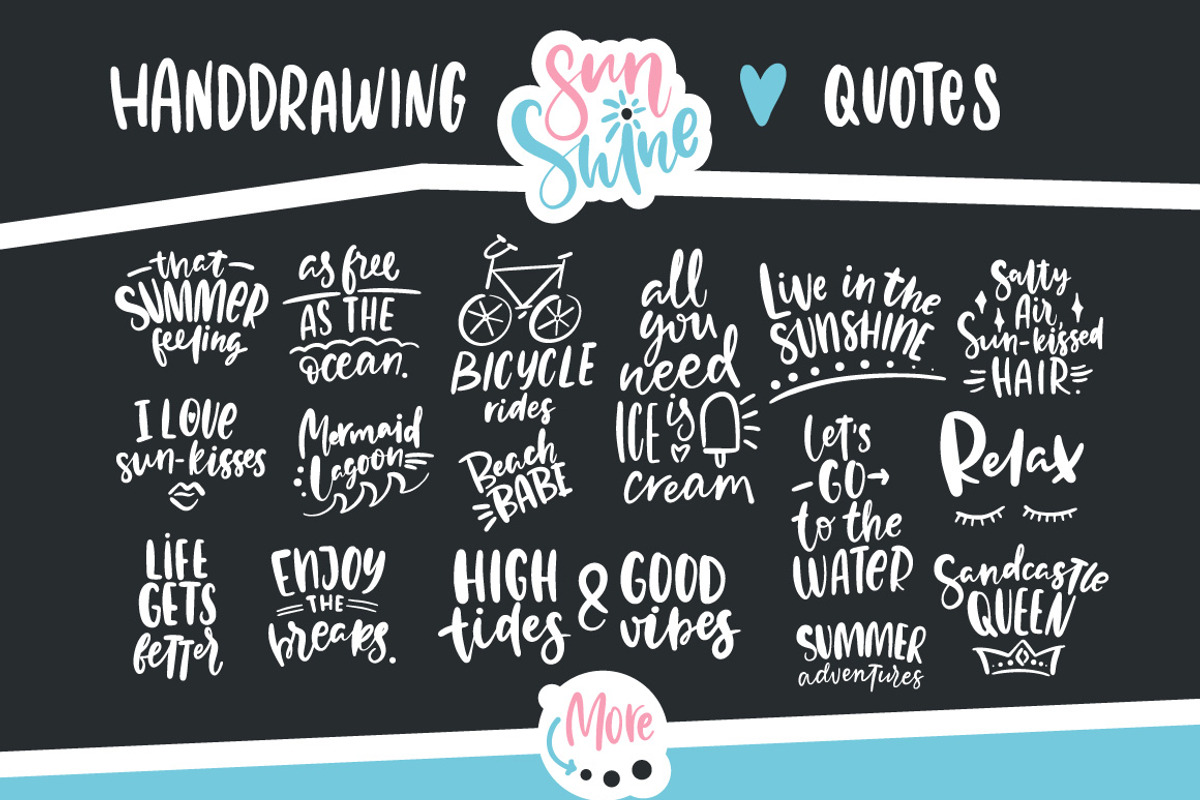 HANDDRAWING
Sun
Shine
QUOTES
that
SUMMER
feeling
as free
AS THE
ocean.
BICYCLE
rides
all
you
need
ICE is
cream
Live in the
SUNSHINE
Salty
Air,
Sun-kissed
HAIR.
I LOVE
sun-kisses
Mermaid
Lagoon
Beach
BABE
Let's
GO
to the
WATER
Relax
LIFE
GETS
better
ENJOY
THE
breaks.
HIGH & GOOD
tides vibes
SUMMER
adventures
Sandcastle
QUEEN
More